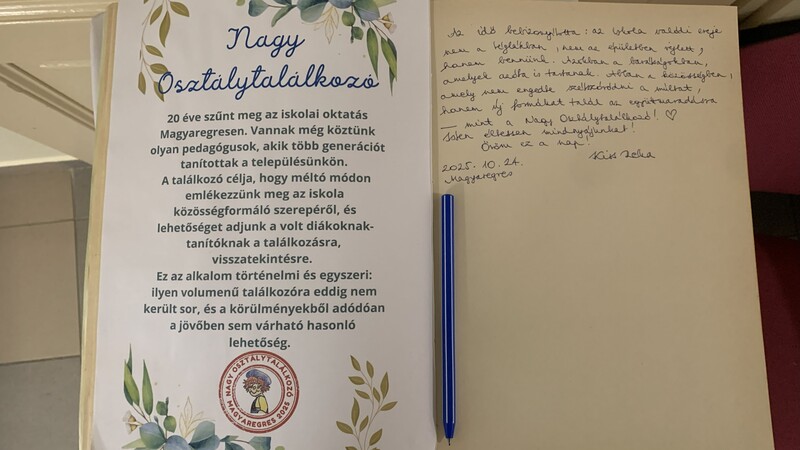 Nagy
Osztálytalálkozó
20 éve szűnt meg az iskolai oktatás
Magyaregresen. Vannak még köztünk
olyan pedagógusok, akik több generációt
tanítottak a településünkön.
A találkozó célja, hogy méltó módon
emlékezzünk meg az iskola
közösségformáló szerepéről, és
lehetőséget adjunk a volt diákoknak-
tanítóknak a találkozásra,
visszatekintésre.
Ez az alkalom történelmi és egyszeri:
ilyen volumenű találkozóra eddig nem
került sor, és a körülményekből adódóan
a jövőben sem várható hasonló
lehetőség.
NAGY OSZTÁLYTALÁLKOZÓ
MAGYAREGRES 2025
Az idő bebizonyította: az iskola valódi ereje
nem a téglákban, nem az épületben rejlett,
hanem bennünk. Azokban a barátságokban,
amelyek azóta is tartanak. Abban a közösségben,
amely nem engedte szétszóródni a múltat,
hanem új formákat talál az együttmaradásra
— mint a Nagy Osztálytalálkozó! ♡
Isten éltessen mindnyájunkat!
Öröm ez a nap!
Kiss
2025. 10. 24.
Magyaregres